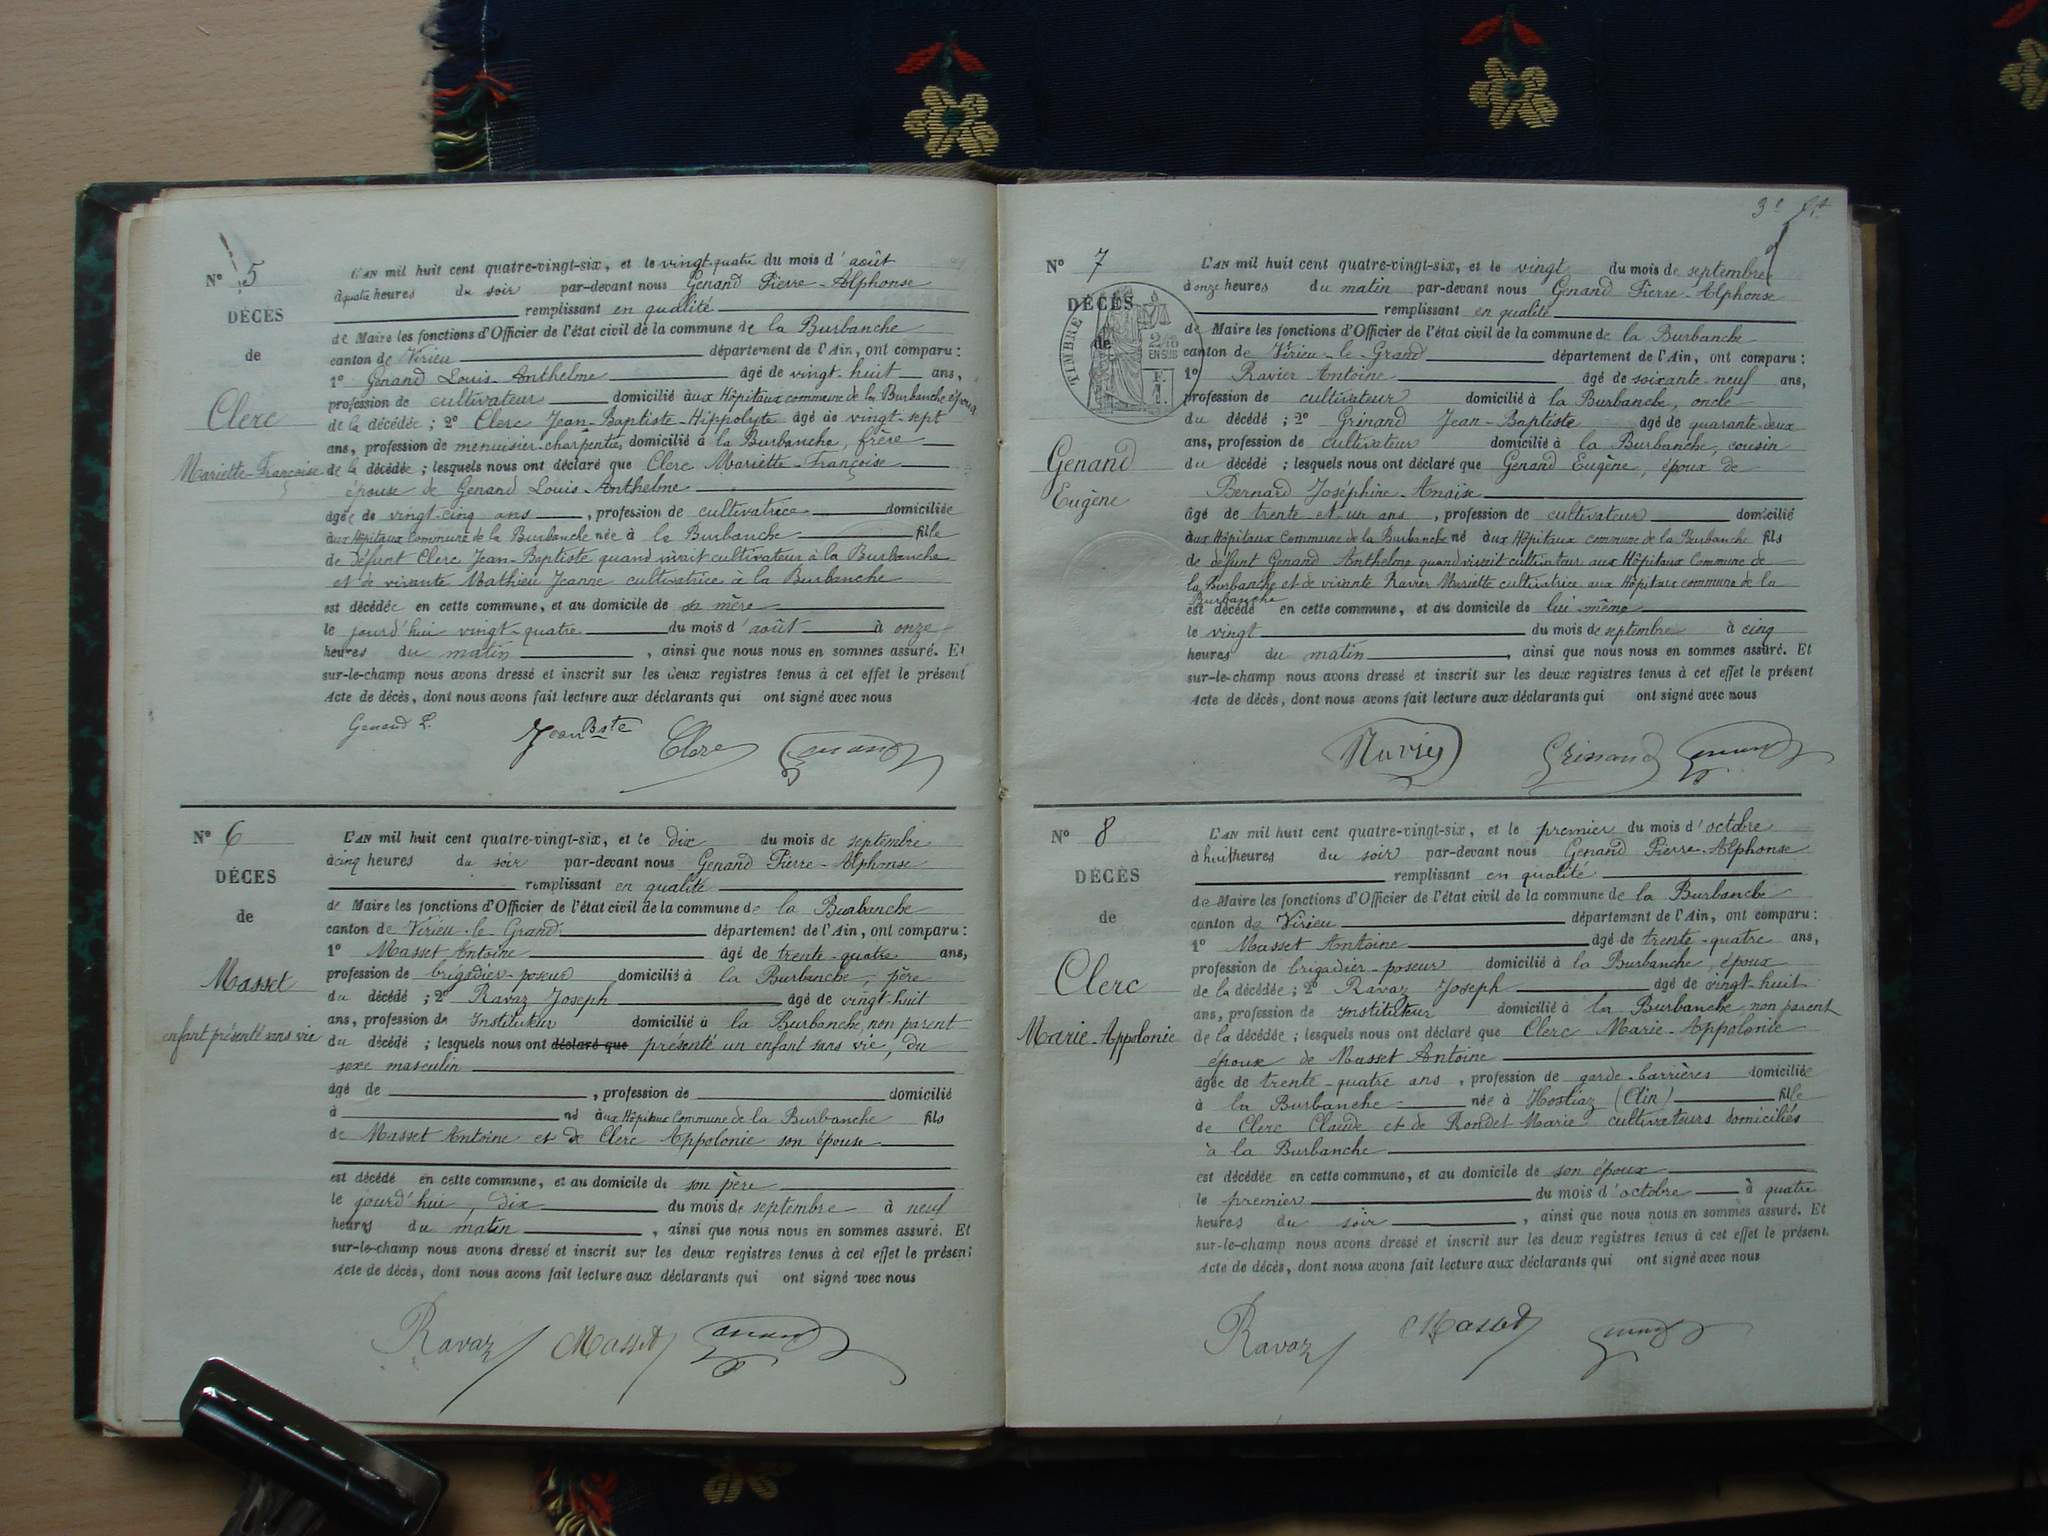 N° 5
DÉCÈS
de
Clerc
Mariette-Françoise
L'AN mil huit cent quatre-vingt-six, et le vingt-quatre du mois d'août
à quatre heures du soir par-devant nous Genand Pierre-Alphonse
remplissant en qualité
de Maire les fonctions d'Officier de l'état civil de la commune de la Burbanche
canton de Virieu département de l'Ain, ont comparu :
1° Genand Louis-Anthelme âgé de vingt-huit ans,
profession de cultivateur domicilié aux Hôpitaux commune de la Burbanche époux
de la décédée ; 2° Clerc Jean-Baptiste-Hippolyte âgé de vingt-sept
ans, profession de menuisier-charpentier domicilié à la Burbanche, frère
de la décédée ; lesquels nous ont déclaré que Clerc Mariette-Françoise
épouse de Genand Louis-Anthelme
âgée de vingt-cinq ans, profession de cultivatrice domiciliée
aux Hôpitaux Commune de la Burbanche née à la Burbanche fille
de défunt Clerc Jean-Baptiste quand vivait cultivateur à la Burbanche
et de vivante Mathieu Jeanne cultivatrice à la Burbanche
est décédée en cette commune, et au domicile de sa mère
le jourd'hui vingt-quatre du mois d'août à onze
heures du matin, ainsi que nous nous en sommes assuré. Et
sur-le-champ nous avons dressé et inscrit sur les deux registres tenus à cet effet le présent
Acte de décès, dont nous avons fait lecture aux déclarants qui ont signé avec nous
Genand L. Jean Bste Clerc Genand
N° 6
DÉCES
de
Masset
enfant présenté sans vie
L'AN mil huit cent quatre-vingt-six, et le dix du mois de septembre
à cinq heures du soir par-devant nous Genand Pierre-Alphonse
remplissant en qualité
de Maire les fonctions d'Officier de l'état civil de la commune de la Burbanche
canton de Virieu-le-Grand département de l'Ain, ont comparu :
1° Masset Antoine âgé de trente-quatre ans,
profession de brigadier-poseur domicilié à la Burbanche, père
du décédé ; 2° Ravaz Joseph âgé de vingt-huit
ans, profession de Instituteur domicilié à la Burbanche, non parent
du décédé ; lesquels nous ont déclaré que présenté un enfant sans vie, du
sexe masculin
âgé de , profession de domicilié
à né aux Hôpitaux Commune de la Burbanche fils
de Masset Antoine et de Clerc Appolonie son épouse
est décédé en cette commune, et au domicile de son père
le jourd'hui, dix du mois de septembre à neuf
heures du matin, ainsi que nous nous en sommes assuré. Et
sur-le-champ nous avons dressé et inscrit sur les deux registres tenus à cet effet le présent
Acte de décès, dont nous avons fait lecture aux déclarants qui ont signé avec nous
Ravaz Masset Genand
3e
N° 7
DÉCÈS
de
TIMBRE
2/10 EN SUS
F. 1.
Genand
Eugène
L'AN mil huit cent quatre-vingt-six, et le vingt du mois de septembre
à onze heures du matin par-devant nous Genand Pierre-Alphonse
remplissant en qualité
de Maire les fonctions d'Officier de l'état civil de la commune de la Burbanche
canton de Virieu-le-Grand département de l'Ain, ont comparu :
1° Ravier Antoine âgé de soixante-neuf ans,
profession de cultivateur domicilié à la Burbanche, oncle
du décédé ; 2° Grinand Jean-Baptiste âgé de quarante-deux
ans, profession de cultivateur domicilié à la Burbanche, cousin
du décédé ; lesquels nous ont déclaré que Genand Eugène, époux de
Bernard Joséphine-Anaïse
âgé de trente-et-un ans, profession de cultivateur domicilié
aux Hôpitaux Commune de la Burbanche né aux Hôpitaux commune de la Burbanche fils
de défunt Genand Anthelme quand vivait cultivateur aux Hôpitaux Commune de
la Burbanche et de vivante Ravier Mariette cultivatrice aux Hôpitaux commune de la
Burbanche
est décédé en cette commune, et au domicile de lui-même
le vingt du mois de septembre à cinq
heures du matin, ainsi que nous nous en sommes assuré. Et
sur-le-champ nous avons dressé et inscrit sur les deux registres tenus à cet effet le présent
Acte de décès, dont nous avons fait lecture aux déclarants qui ont signé avec nous
Ravier Grinand Genand
N° 8
DÉCÈS
de
Clerc
Marie-Appolonie
L'AN mil huit cent quatre-vingt-six, et le premier du mois d'octobre
à huit heures du soir par-devant nous Genand Pierre-Alphonse
remplissant en qualité
de Maire les fonctions d'Officier de l'état civil de la commune de la Burbanche
canton de Virieu département de l'Ain, ont comparu :
1° Masset Antoine âgé de trente-quatre ans,
profession de brigadier-poseur domicilié à la Burbanche, époux
de la décédée ; 2° Ravaz Joseph âgé de vingt-huit
ans, profession de Instituteur domicilié à la Burbanche non parent
de la décédée ; lesquels nous ont déclaré que Clerc Marie-Appolonie
époux de Masset Antoine
âgée de trente-quatre ans, profession de garde-barrières domiciliée
à la Burbanche née à Hostiaz (Ain) fille
de Clerc Claude et de Rondet Marie cultivateurs domiciliés
à la Burbanche
est décédée en cette commune, et au domicile de son époux
le premier du mois d'octobre à quatre
heures du soir, ainsi que nous nous en sommes assuré. Et
sur-le-champ nous avons dressé et inscrit sur les deux registres tenus à cet effet le présent
Acte de décès, dont nous avons fait lecture aux déclarants qui ont signé avec nous
Ravaz Masset Genand